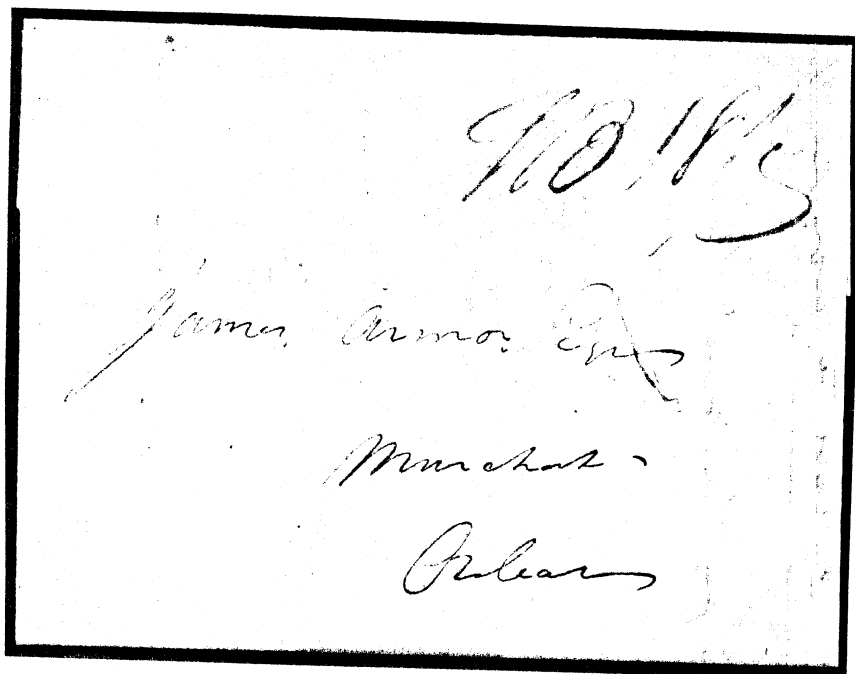 James Armor Esqr
Merchant
Orleans